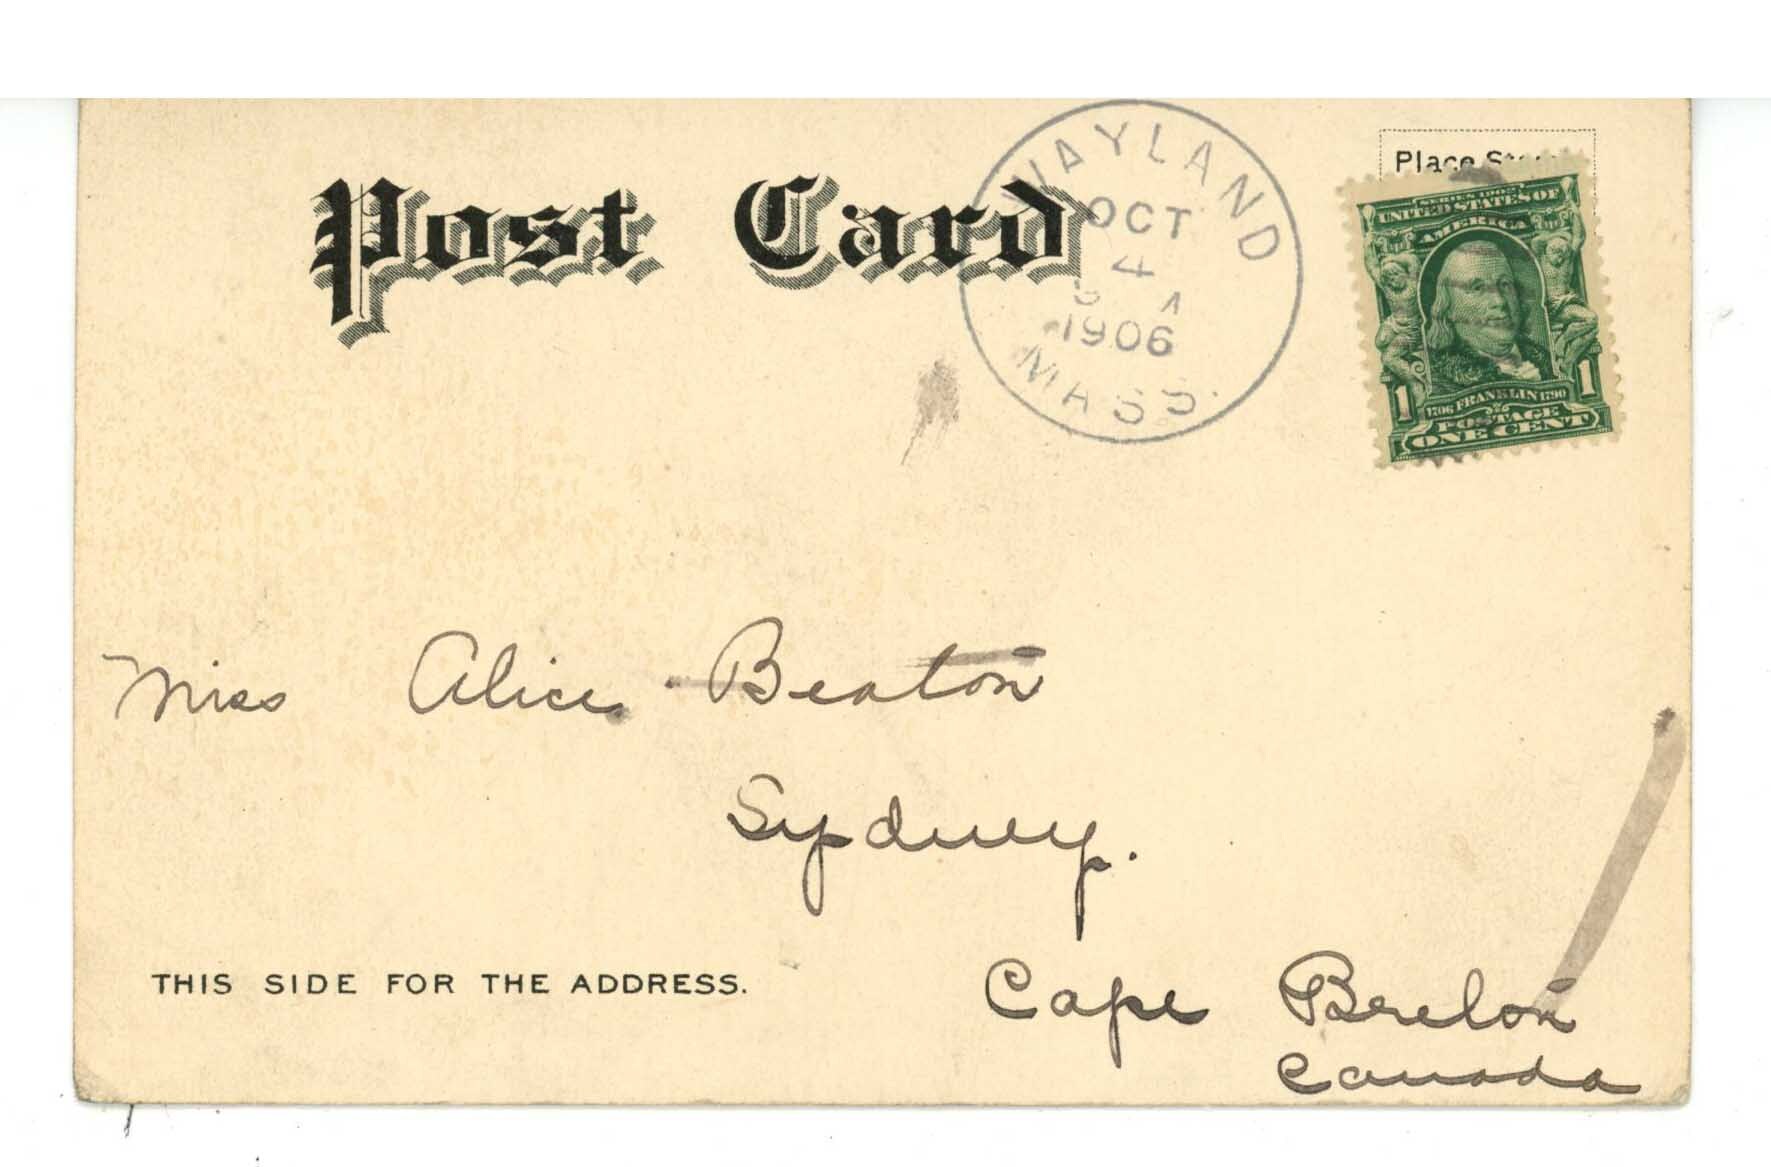 Post Card
WAYLAND
OCT
4
1906
MASS.
Place
SERIES 1902
UNITED STATES OF
AMERICA
1 1
1706 FRANKLIN 1790
POSTAGE
ONE CENT
Miss Alice Beaton
Sydney.
THIS SIDE FOR THE ADDRESS.
Cape Breton
Canada